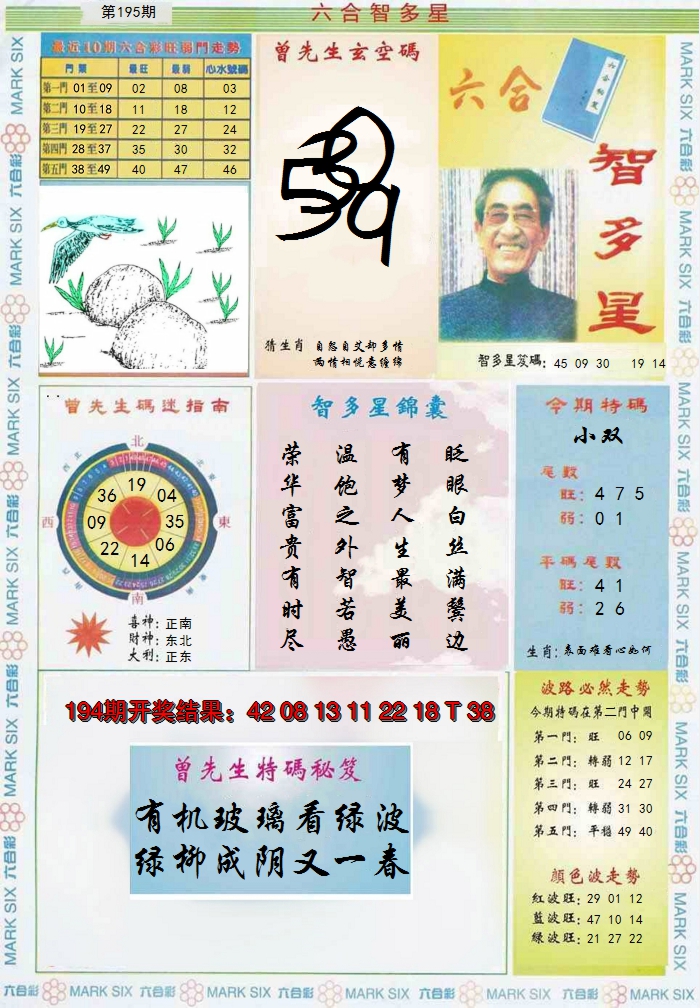 第195期
六合智多星
最近10期六合彩旺弱門走勢
門類 最旺 最弱 心水號碼
第一門 01至09 02 08 03
第二門 10至18 11 18 12
第三門 19至27 22 27 24
第四門 28至37 35 30 32
第五門 38至49 40 47 46
曾先生玄空碼
猜生肖 自怨自艾却多情
两情相悦意缠绵
六合
智多星
智多星笈碼: 45 09 30 19 14
曾先生碼迷指南
北
西
東
南
19
04
35
06
14
22
09
36
喜神: 正南
財神: 东北
大利: 正东
智多星錦囊
眨眼白丝满鬓边
有梦人生最美丽
温饱之外智若愚
荣华富贵有时尽
今期特碼
小双
尾数
旺: 4 7 5
弱: 0 1
平碼尾数
旺: 4 1
弱: 2 6
生肖: 表面难看心如何
194期开奖结果: 42 08 13 11 22 18 T 38
曾先生特碼秘笈
有机玻璃看绿波
绿柳成阴又一春
波路必然走勢
今期特碼在第二門中開
第一門: 旺 06 09
第二門: 轉弱 12 17
第三門: 旺 24 27
第四門: 轉弱 31 30
第五門: 平穩 49 40
顏色波走勢
紅波旺: 29 01 12
藍波旺: 47 10 14
綠波旺: 21 27 22
MARK SIX 六合彩